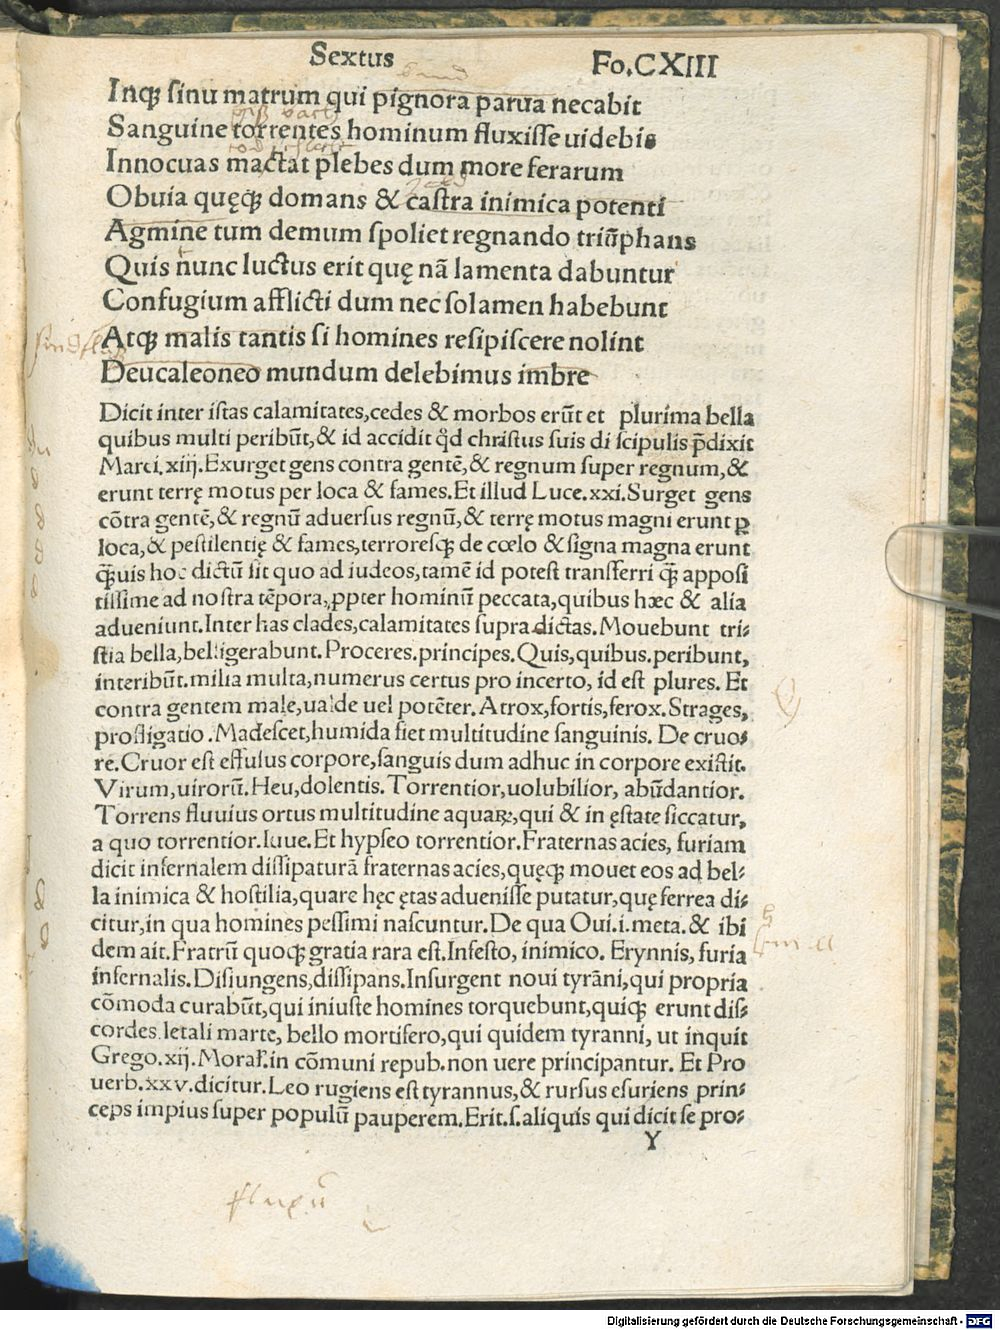 Sextus Fo.CXIII
Inqꝫ ſinu matrum qui pignora parua necabit
Sanguine torrentes hominum fluxiſſe uidebis
Innocuas mactat plebes dum more ferarum
Obuia quęqꝫ domans & caſtra inimica potenti
Agmine tum demum ſpoliet regnando triūphans
Quis nunc luctus erit quę nā lamenta dabuntur
Confugium afflicti dum nec ſolamen habebunt
Atqꝫ malis tantis ſi homines reſipiſcere nolint
Deucaleoneo mundum delebimus imbre
Dicit inter iſtas calamitates,cedes & morbos erūt et plurima bella
quibus multi peribūt,& id accidit qd̄ chriſtus ſuis di ſcipulis p̄dixit
Marci.xiij.Exurget gens contra gentē,& regnum ſuper regnum,&
erunt terrę motus per loca & fames.Et illud Luce.xxi.Surget gens
cōtra gentē,& regnū aduerſus regnū,& terrę motus magni erunt ꝑ
loca,& peſtilentię & fames,terroreſqꝫ de cœlo & ſigna magna erunt
q̄uis hoc dictū ſit quo ad iudeos,tamē id poteſt tranſferri q̄ appoſi
tiſſime ad noſtra tēpora,ꝓpter hominū peccata,quibus hæc & alia
adueniunt.Inter has clades,calamitates ſupra dictas.Mouebunt tri⸗
ſtia bella,belligerabunt.Proceres.principes.Quis,quibus.peribunt,
interibūt.milia multa,numerus certus pro incerto, id eſt plures. Et
contra gentem male,ualde uel potēter.Atrox,fortis,ferox.Strages,
profligatio.Madeſcet,humida fiet multitudine ſanguinis. De cruo⸗
re.Cruor eſt effuſus corpore,ſanguis dum adhuc in corpore exiſtit.
Virum,uirorū.Heu,dolentis.Torrentior,uolubilior, abūdantior.
Torrens fluuius ortus multitudine aquaꝝ,qui & in ęſtate ſiccatur,
a quo torrentior.Iuue.Et hypſeo torrentior.Fraternas acies, furiam
dicit infernalem diſſipaturā fraternas acies,quęqꝫ mouet eos ad bel⸗
la inimica & hoſtilia,quare hęc ętas adueniſſe putatur,quę ferrea di⸗
citur,in qua homines peſſimi naſcuntur.De qua Oui.i.meta.& ibi
dem ait.Fratrū quoqꝫ gratia rara eſt.Infeſto, inimico. Erynnis, furia
infernalis.Diſiungens,diſſipans.Inſurgent noui tyrāni,qui propria
cōmoda curabūt,qui iniuſte homines torquebunt,quiqꝫ erunt diſ⸗
cordes letali marte, bello mortifero,qui quidem tyranni, ut inquit
Grego.xij.Moral.in cōmuni repub.non uere principantur. Et Pro
uerb.xxv.dicitur.Leo rugiens eſt tyrannus,& rurſus eſuriens prin⸗
ceps impius ſuper populū pauperem.Erit.ſ.aliquis qui dicit ſe pro⸗
Y
Digitalisierung gefördert durch die Deutsche Forschungsgemeinschaft - DFG